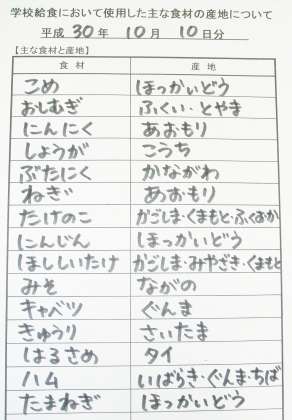 学校給食において使用した主な食材の産地について
平成 30 年 10 月 10 日分
【主な食材と産地】
食材 産地
こめ ほっかいどう
おしむぎ ふくい・とやま
にんにく あおもり
しょうが こうち
ぶたにく かながわ
ねぎ あおもり
たけのこ かごしま・くまもと・ふくおか
にんじん ほっかいどう
ほししいたけ かごしま・みやざき・くまもと
みそ ながの
キャベツ ぐんま
きゅうり さいたま
はるさめ タイ
ハム いばらき・ぐんま・ちば
たまねぎ ほっかいどう